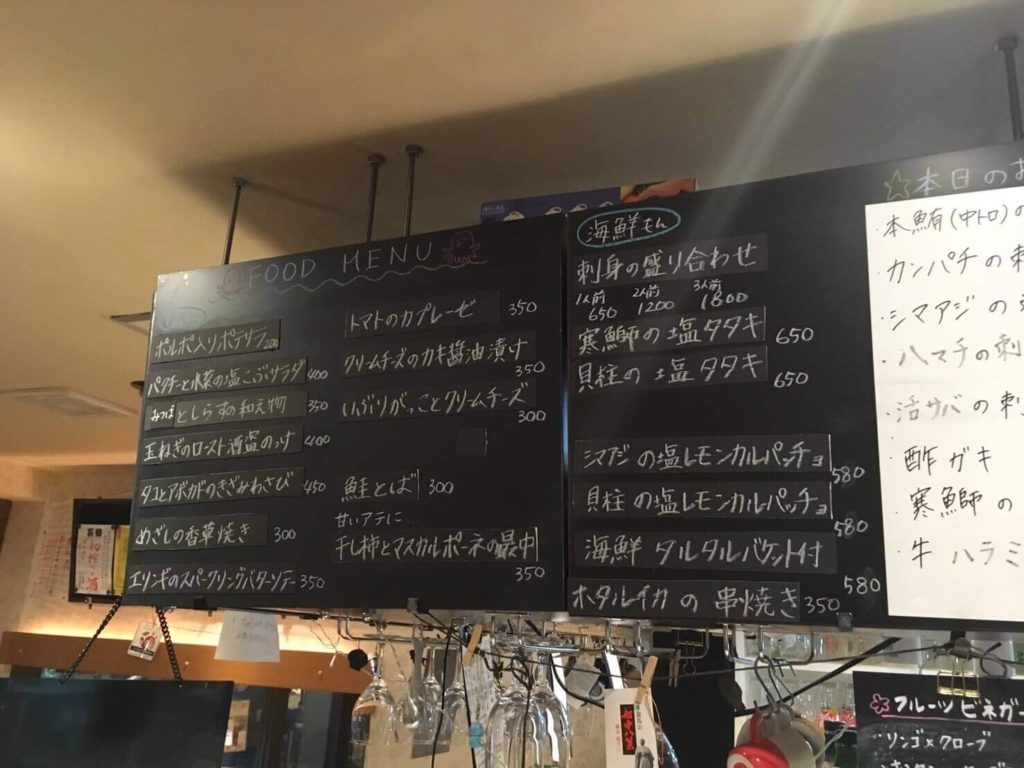 FOOD MENU
ポルポ入りポテサラ 200
パクチーと水菜の塩こぶサラダ 400
みつばとしらすの和え物 350
玉ねぎのロースト酒盗のっけ 400
タコとアボガドのきざみわさび 450
めざしの香草焼き 300
エリンギのスパークリングバターソテー 350
トマトのカプレーゼ 350
クリームチーズのカキ醤油漬け 350
いぶりがっことクリームチーズ 300
鮭とば 300
甘いアテに…
干し柿とマスカルポーネの最中 350
海鮮もん
刺身の盛り合わせ
1人前 2人前 3人前
650 1200 1800
寒鰤の塩タタキ 650
貝柱の塩タタキ 650
シマアジの塩レモンカルパッチョ 580
貝柱の塩レモンカルパッチョ 580
海鮮タルタルバケット付 580
ホタルイカの串焼き 350
☆本日のお
本鮪(中トロ)の
・カンパチの刺
・シマアジの
・ハマチの刺
・活サバの刺
・酢ガキ
寒鰤の
・牛ハラミ
フルーツビネガー
・リンゴ×クローブ